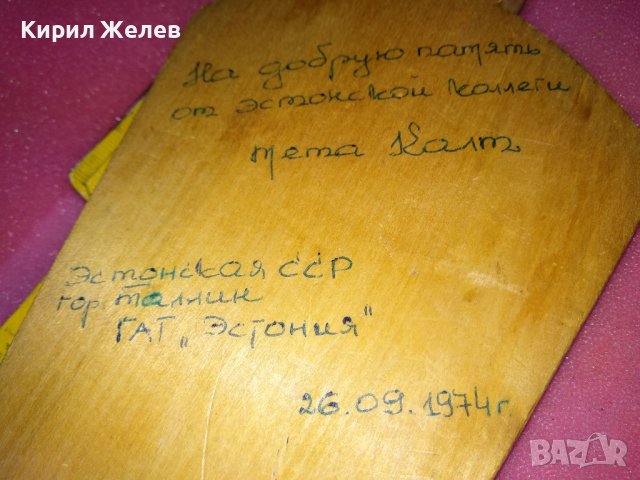 Кирил Желев
На добрую память
от эстонской коллеги
Мета Калт
Эстонская ССР
гор. Таллин
ГАТ „Эстония"
26.09.1974 г.
BAZAR